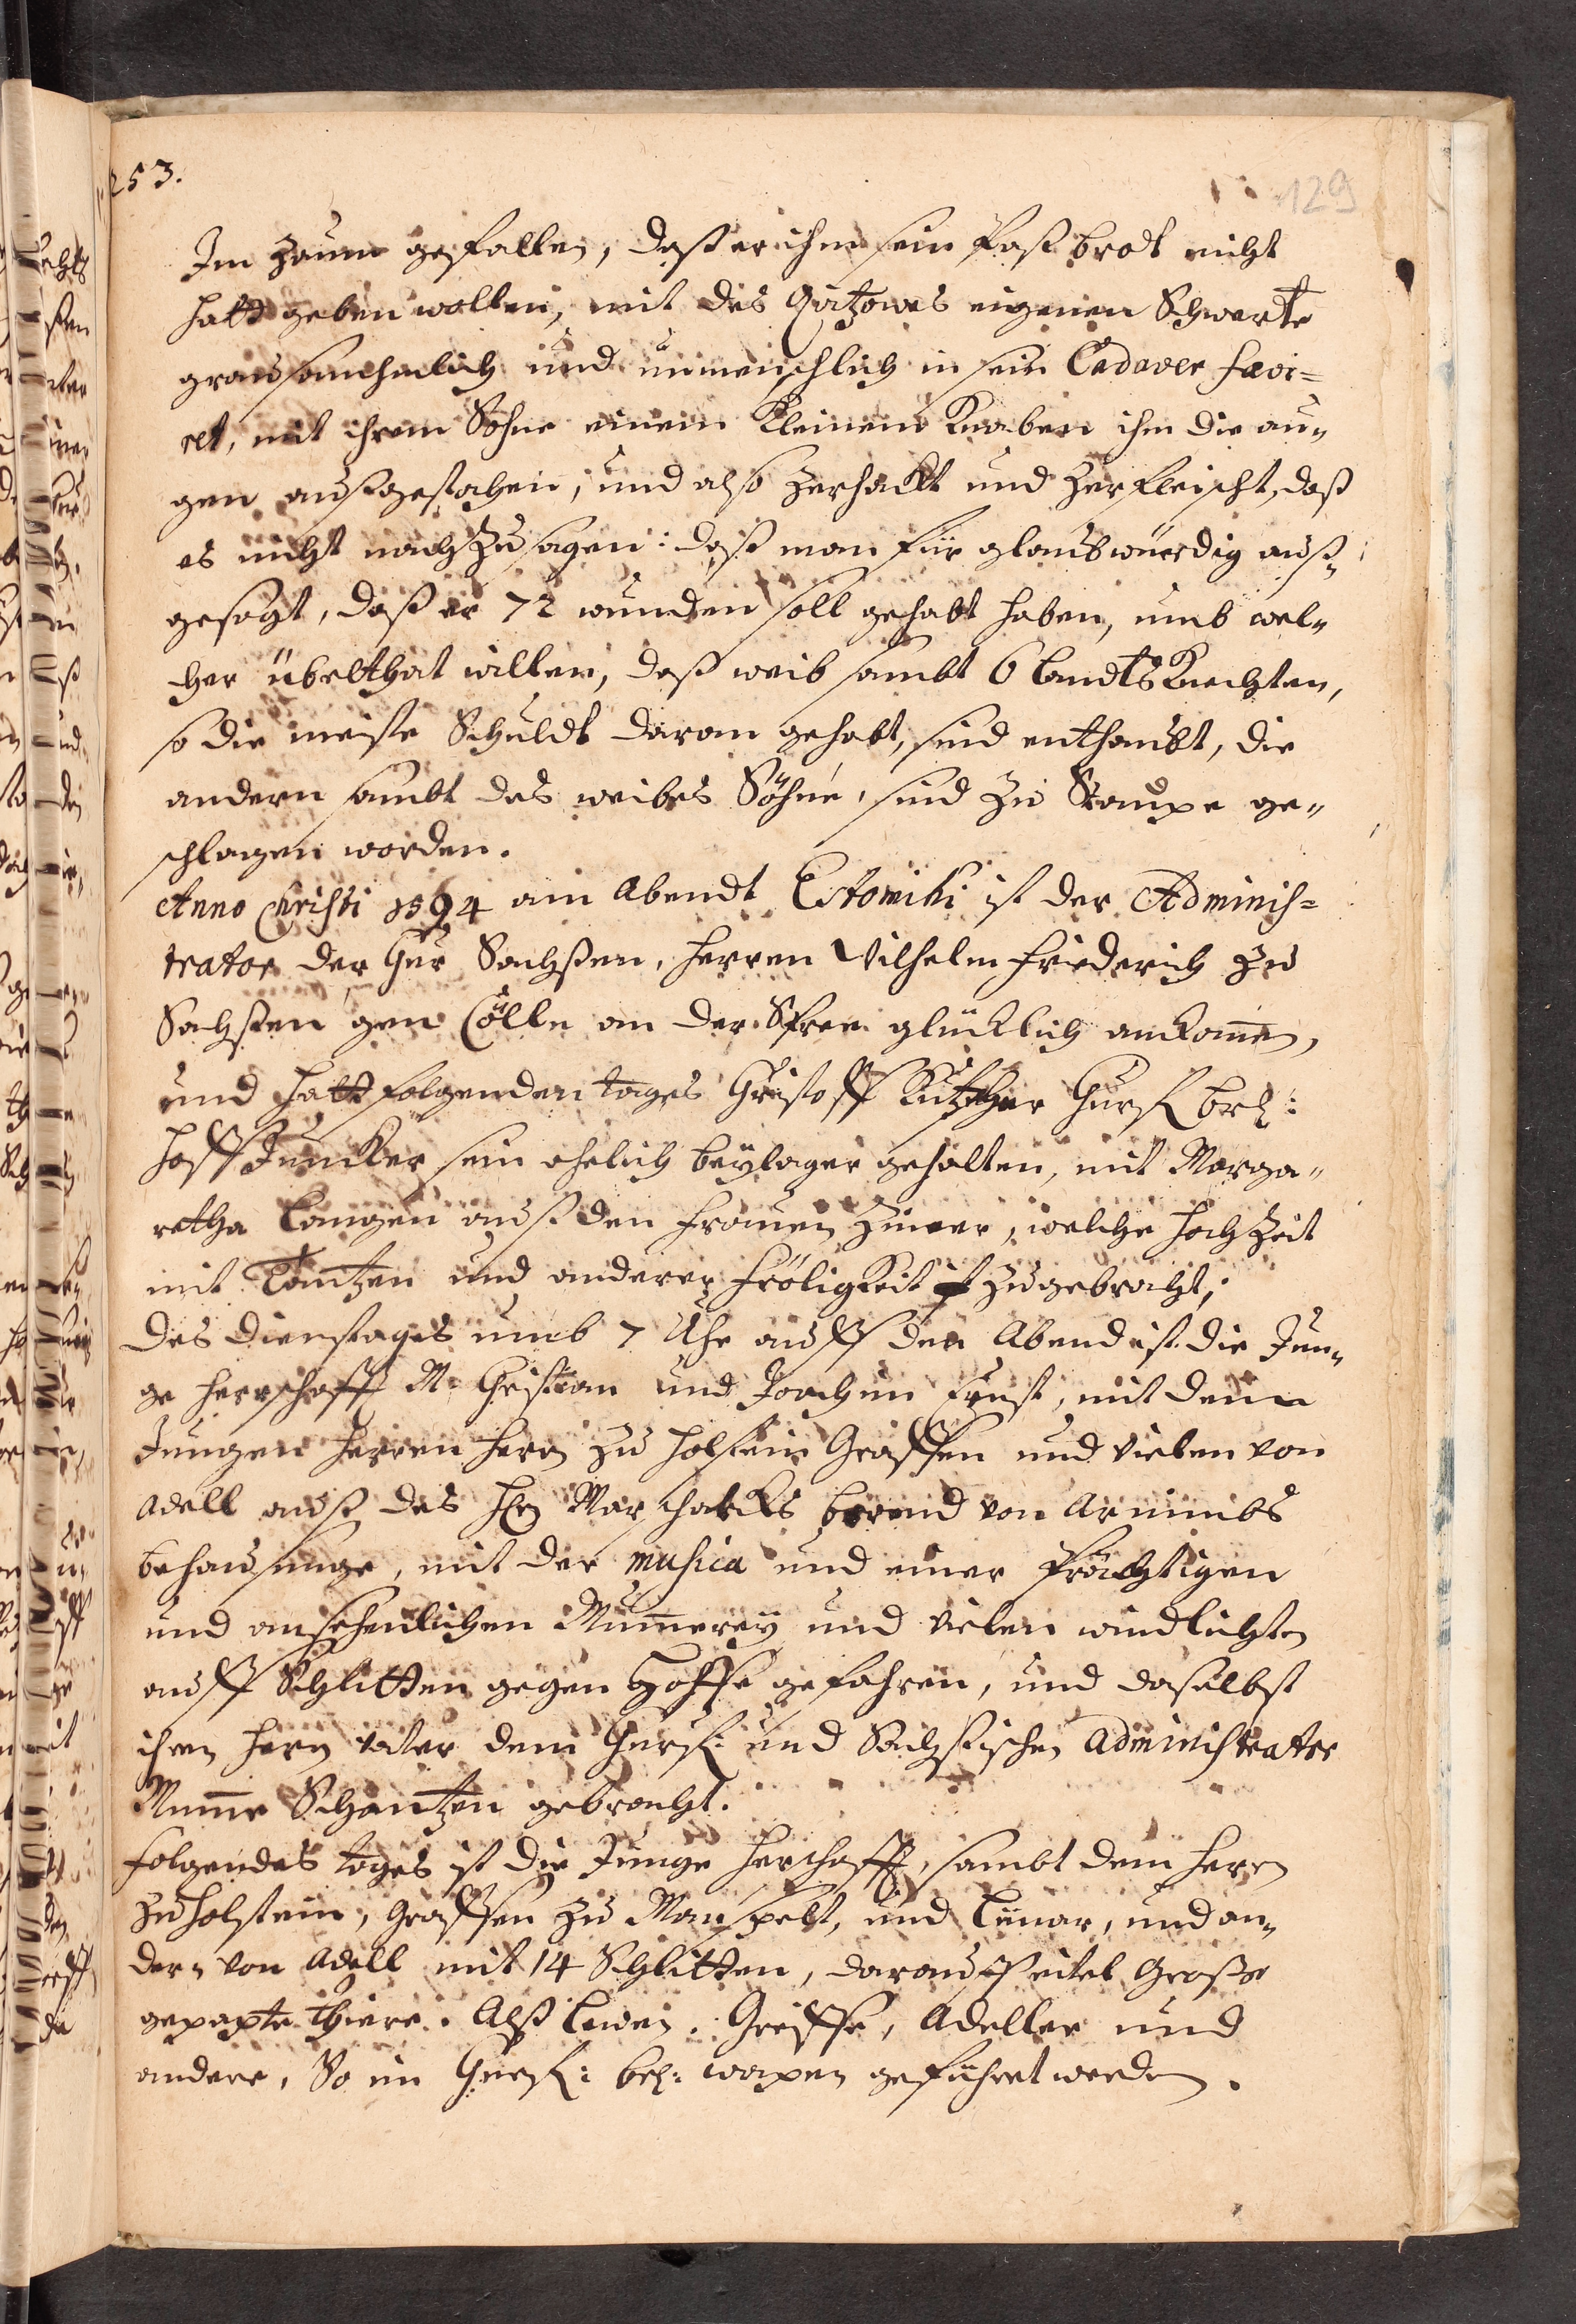 253.
129
Im Zaum gefallen, daß er ihm sein Paß brodt nicht
hatt geben wollen, mit des Quitzowes eigenen Schwerte
grausamhmlich und unmenschlich in sein Cadaver saevi=
ret, mit ihrem Sohne einem Kleinem Knaben ihm die au„
gen außgestochen, und also zerhackt und zerfleischt, daß
es nicht nachzusagen: daß man für glaubwürdig auß„
gesagt, daß er 72 wunden soll gehabt haben, umb wel„
cher übelthat willen, daß weib sambt 6 Landts Knechten,
so die meiste Schuldt daran gehabt, sind enthaubt, die
andern sambt des weibes Söhne, sind zu Staupe ge„
schlagen worden.
Anno Christi 1594 am Abendt Estomihi ist der Adminis=
trator der Chur Sachßen, Herren Wilhelm Friederich zu
Sachßen gen Cölln an der Sprew glücklich ankom̄en,
und hatt folgenden tages Christoff Chursl brl:
Hoff Juncker sein ehelich beylager gehalten, mit Marga„
retha Langen auß den Frauen Zim̄er, welche Hochzeit
mit Tantzen und anderer Fröligkeit zugebracht,
Des Dienstages umb 7 Uhr auff den Abend ist die Jun„
ge Herrschafft M. Christian und Joachim Ernst, mit dem
Jungen Herren Hern zu Holstein Graffen und vielen von
Adell auß des Hn Marschalcks Berend von Arnimbs
behausunge, mit der musica und einer Prächtigen
und ansehenlichen Mum̄erey und vielen windlichten
auff Schlitten gegen Hoffe gefahren, und daselbst
ihren Hern vater dem Churf: und Sächsischen Administrator
Mum̄e Schantzen gebracht.
Folgendes tages ist die Junge Herschafft, sambt dem Hern
zu Holstein, Graffen zu Manspelt, und Lünar, und an„
dern von Adell mit 14 Schlitten, darauff eitel Große
gepapte Thiere. Alß Lewen, Greiffe, Adeller und
andere, So im Churf: brl: wapen geführet werden.